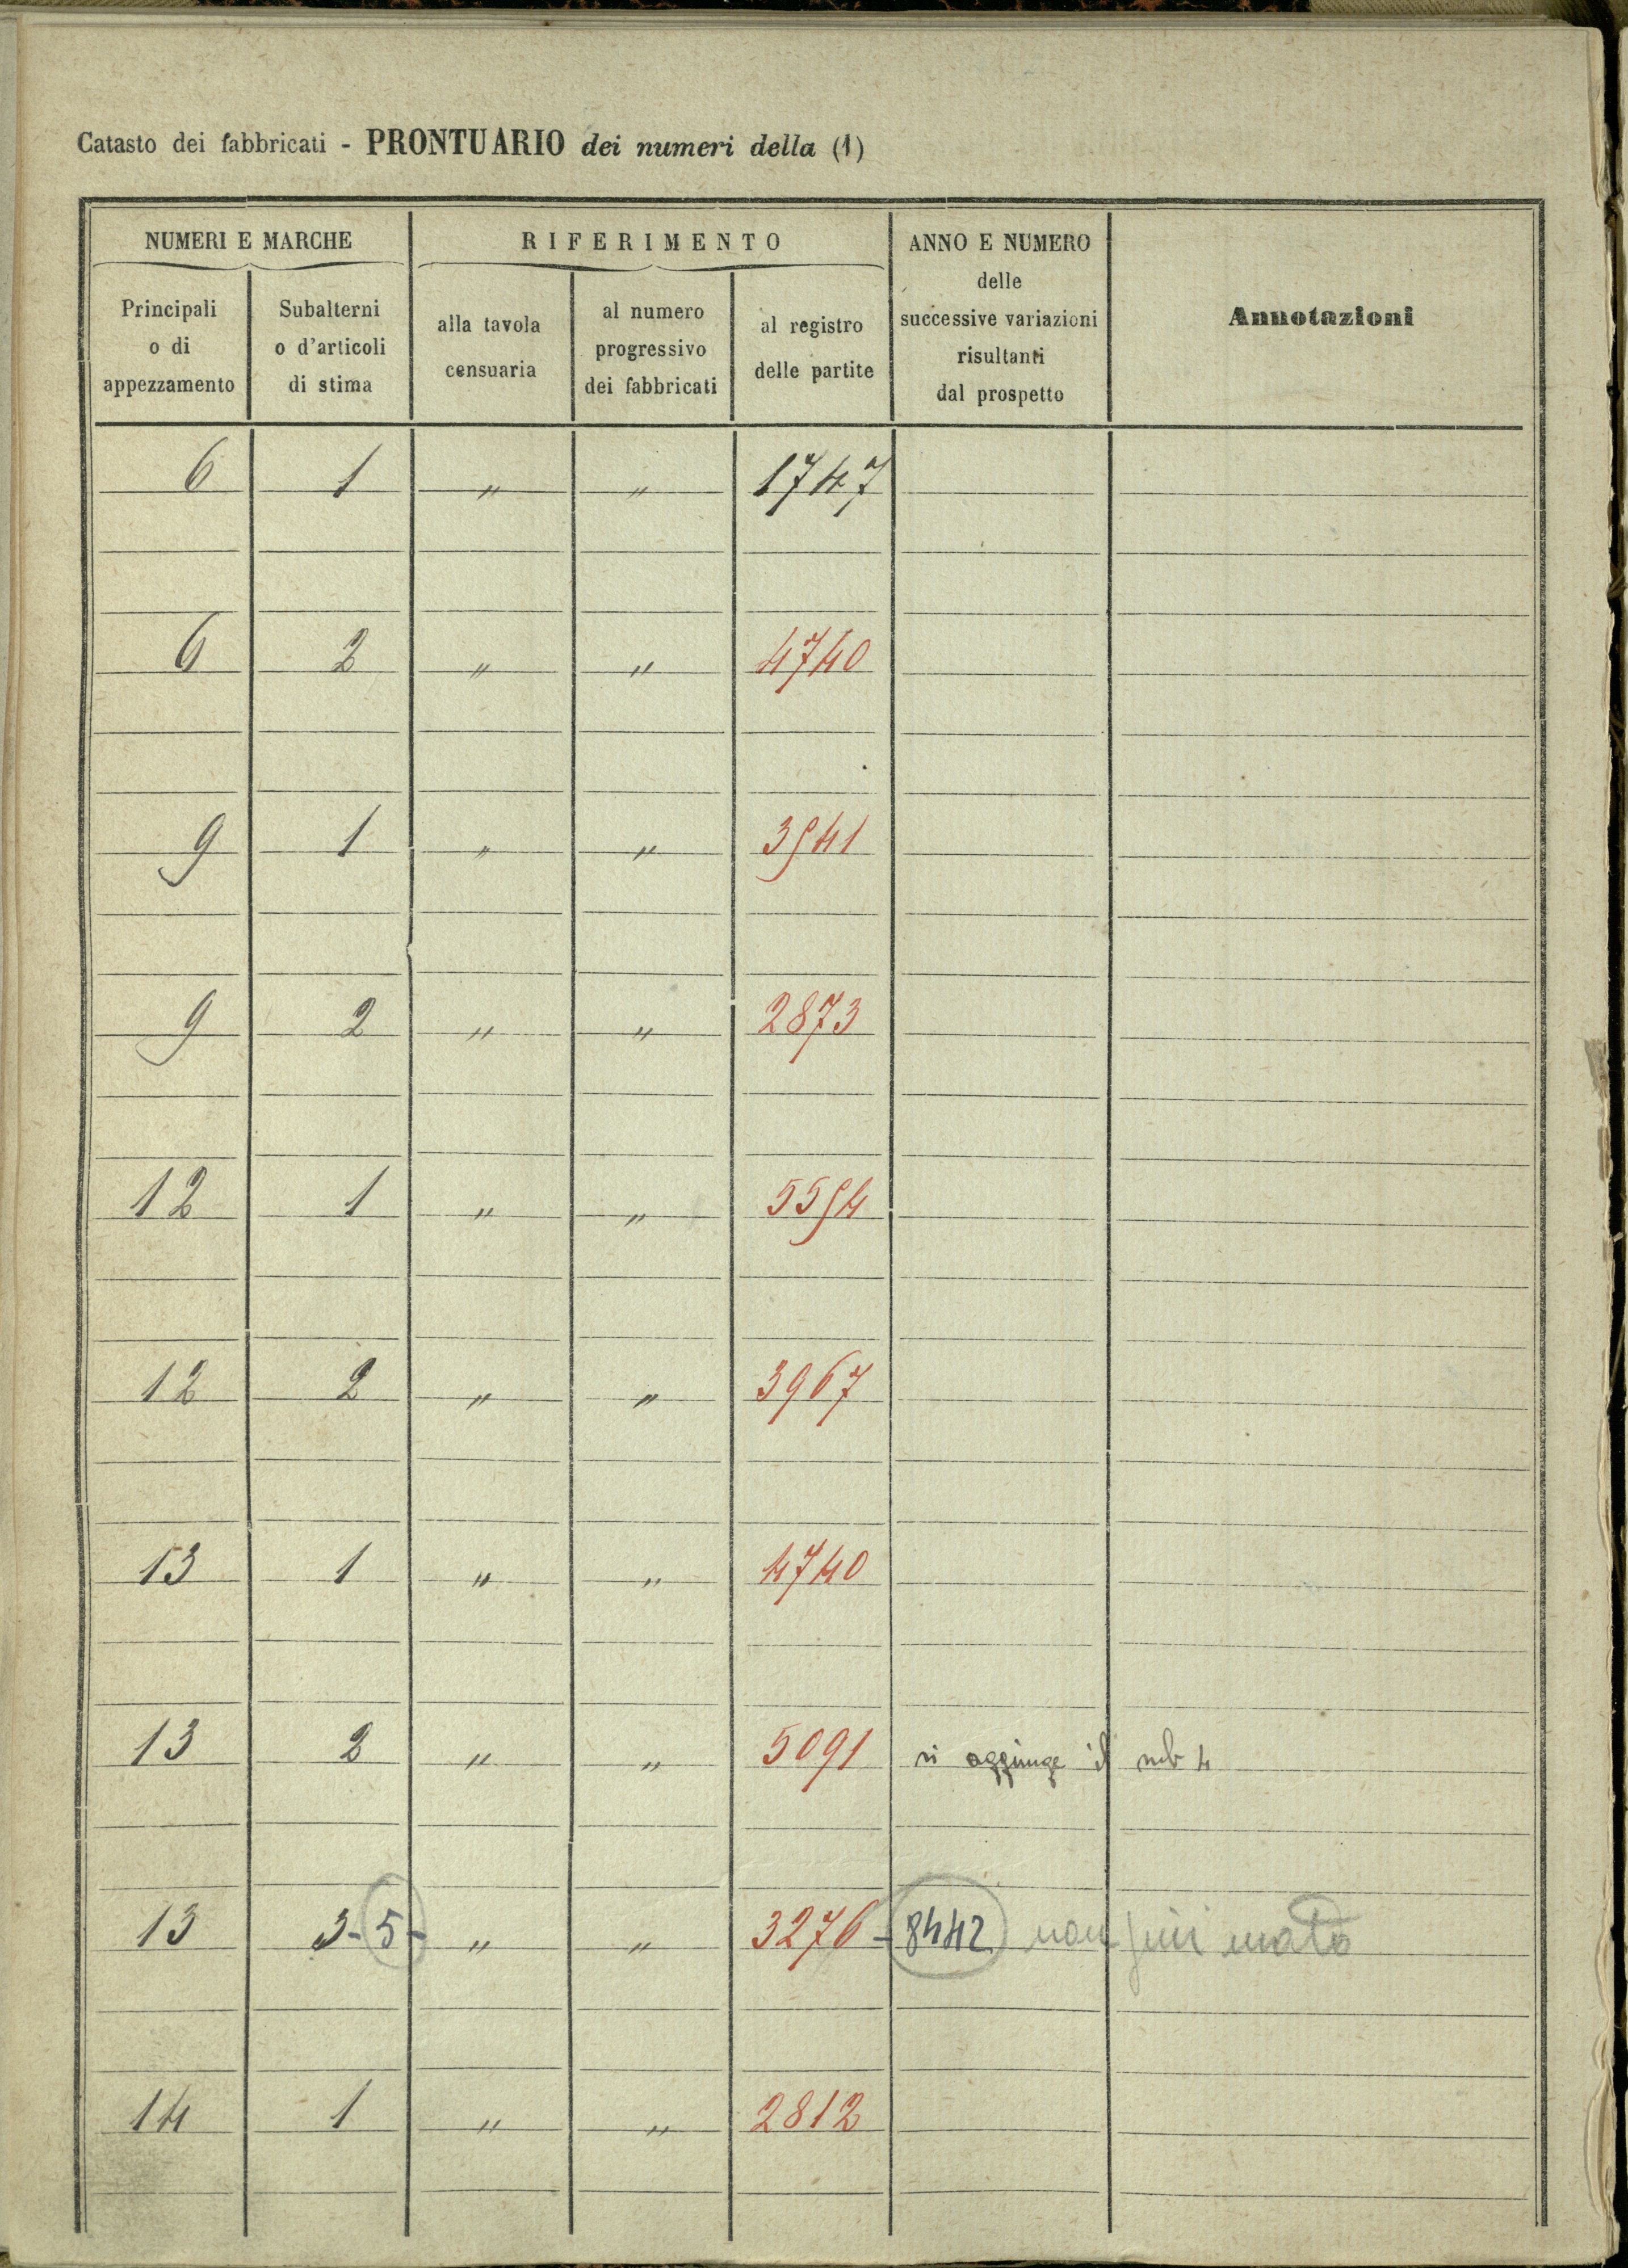 Catasto dei fabbricati - PRONTUARIO dei numeri della (1)
NUMERI E MARCHE
RIFERIMENTO
ANNO E NUMERO
delle
successive variazioni
risultanti
dal prospetto
Annotazioni
Principali
o di
appezzamento
Subalterni
o d'articoli
di stima
alla tavola
censuaria
al numero
progressivo
dei fabbricati
al registro
delle partite
6 1 " " 1747
6 2 " " 4740
9 1 " " 3941
9 2 " " 2873
12 1 " " 5594
12 2 " " 3967
13 1 " " 4740
13 2 " " 5091 si aggiunge il sub 4
13 3-5- " " 3276-8442 non
14 1 " " 2812